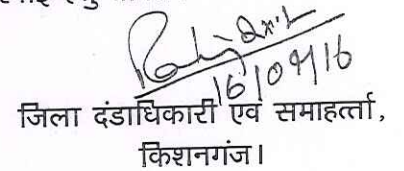 16/09/16
जिला दंडाधिकारी एवं समाहर्त्ता,
किशनगंज।